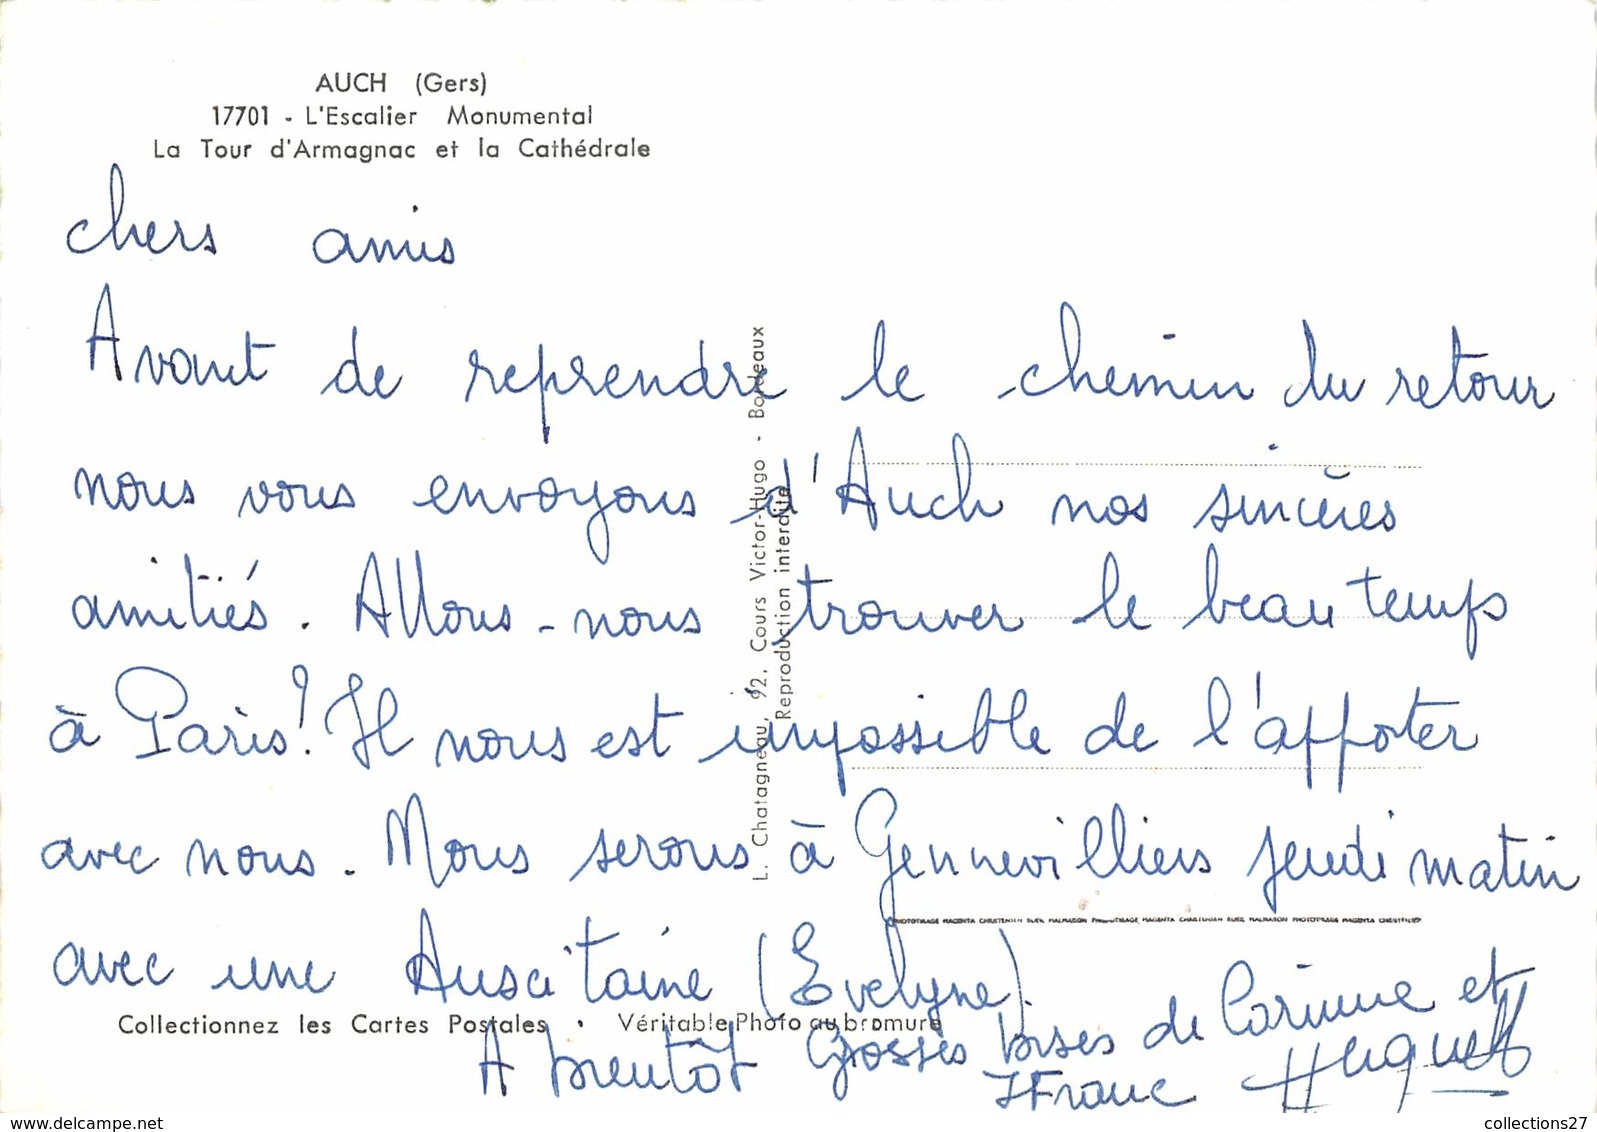 AUCH (Gers)
17701 - L'Escalier Monumental
La Tour d'Armagnac et la Cathédrale
chers amis
Avant de reprendre le chemin du retour
nous vous envoyons d'Auch nos sincères
amitiés. Allons-nous trouver le beau temps
à Paris? Il nous est impossible de l'apporter
avec nous. Nous serons à Gennevilliers jeudi matin
avec une Auscitaine (Evelyne).
A bientôt Grosses bises de Corinne et
Franc Huguette
L. Chatagneau, 92, Cours Victor-Hugo - Bordeaux
Reproduction interdite
PHOTOTIRAGE MAGENTA CHRISTENSEN RUEIL MALMAISON PHOTOTIRAGE MAGENTA CHRISTENSEN RUEIL MALMAISON PHOTOTIRAGE MAGENTA
Collectionnez les Cartes Postales • Véritable Photo au bromure
www.delcampe.net
collections27